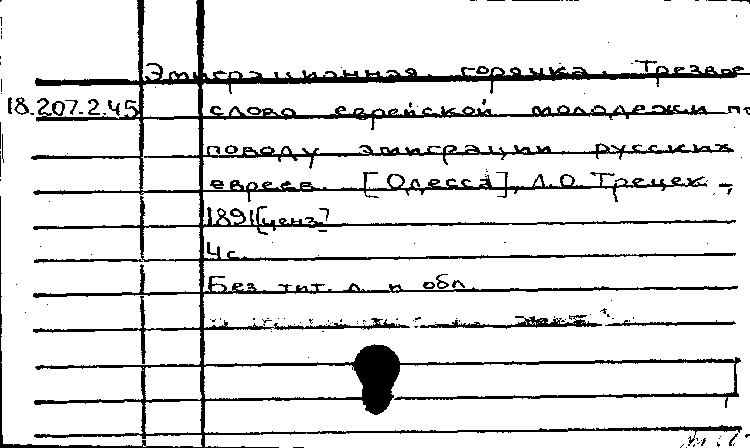 Эмиграционная горячка. Трезвое
18.207.2.45 слово еврейской молодежи по
поводу эмиграции русских
евреев. [Одесса], Л.О. Трецек,
1891 [ценз]
4 с.
Без тит. л. и обл.